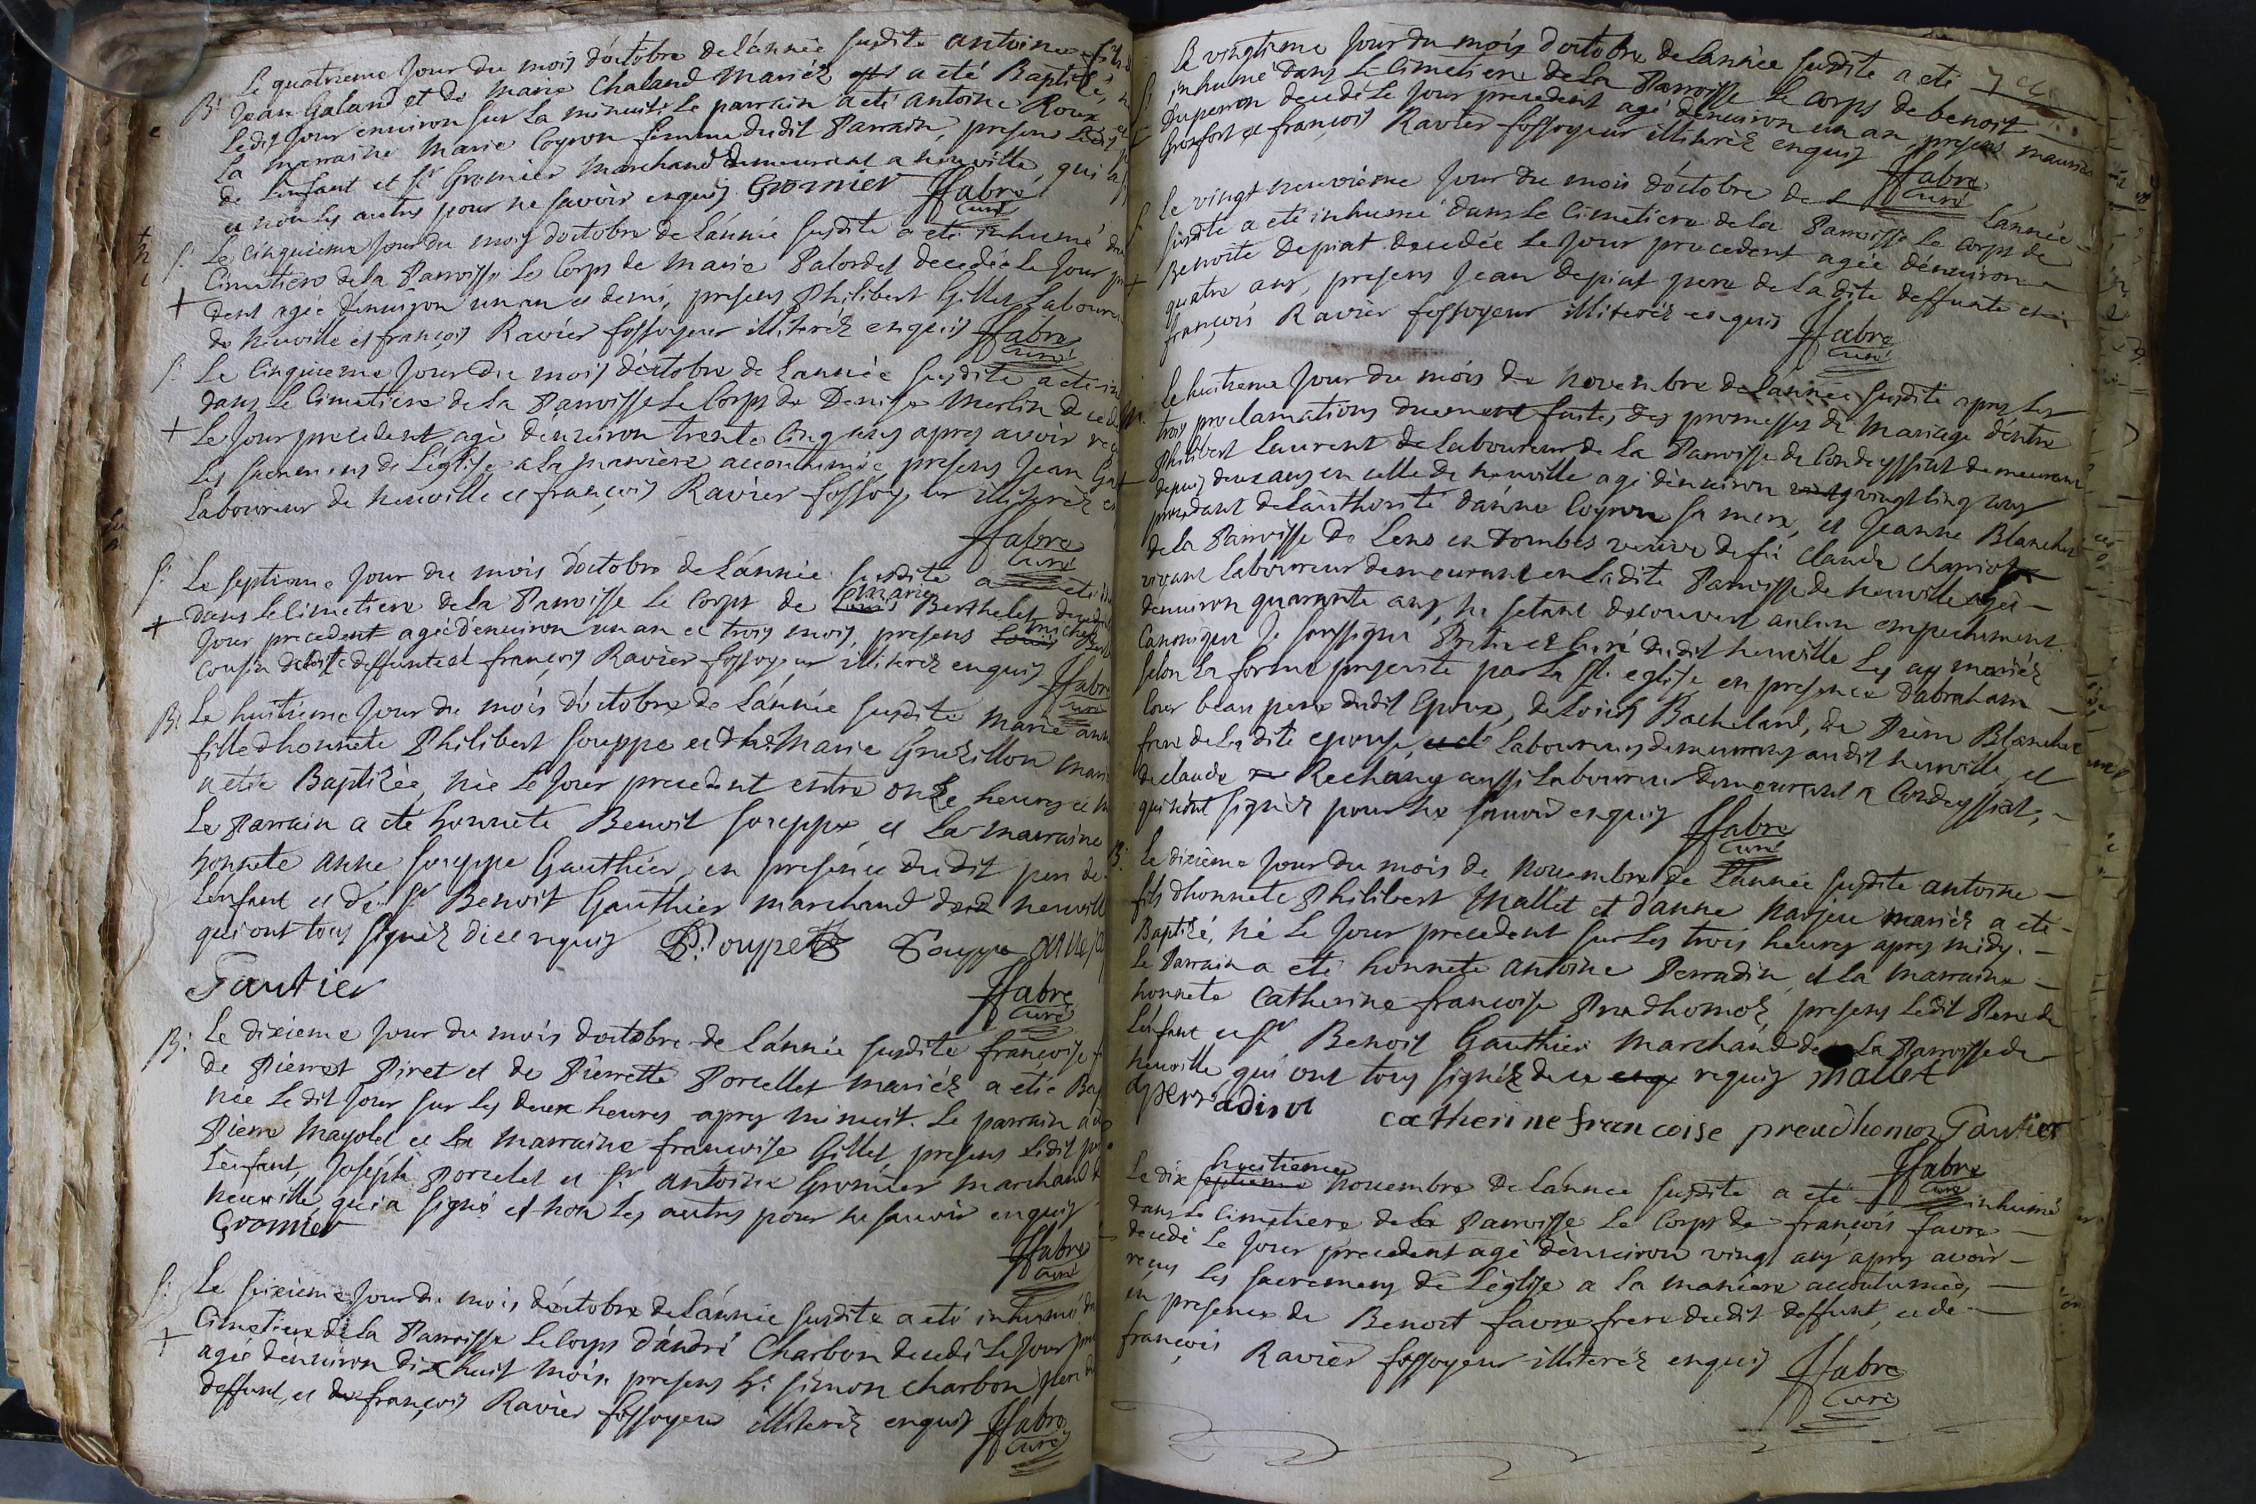 Le quatrieme Jour du mois d'octobre de l'année susdite antoine fils
B: Jean Galand et de Marie Chaland Mariéz a eté Baptisé,
Ledit Jour environ sur La minuit Le parrain a eté Antoine Roux
La marraine Marie Coyron femme dudit Parrain, presens Ledit
de L'enfant et Sr Gromier Marchand demeurant a neuville, qui a
et non Les autres pour ne savoir enquis Gromier ffabre
curé
S: Le Cinquieme Jour du mois d'octobre de L'année susdite a eté inhumé
Cimetiere de la Parroisse Le Corps de Marie Palordet decedée Le Jour
+ dent agée d'environ un an et demi, presens Philibert Gillet Laboureur
de Neuville et françois Ravier fossoyeur illiteréz enquis ffabre
curé
S: Le Cinquieme Jour du mois d'octobre de L'année susdite a eté
dans Le Cimetiere de La Parroisse Le Corps de Denise Merlin
+ Le Jour precedent agé d'environ trente Cinq ans apres avoir
Les sacremens de L'église a La maniere accoutumée, presens Jean
Laboureur de Neuville et françois Ravier fossoyeur illiteréz
ffabre
curé
S: Le septieme Jour du mois d'octobre de L'année susdite a eté
+ dans le Cimetiere de La Parroisse Le Corps de marie Berthelet
Jour precedent agée d'environ un an et trois mois, presens michel
cousin de ladite deffunte et françois Ravier fossoyeur illiteréz enquis ffabre
curé
B: Le huitieme Jour du mois d'octobre de L'année susdite Marie
fille d'honnete Philibert souppe et d'hte Marie Gruzillon
a etée Baptizée, née Le Jour precedent entre onze heures et
Le Parrain a eté honnete Benoit souppe et La marraine
honnete anne souppe Gauthier, en presence dudit pere de
L'enfant et de Sr Benoit Gauthier marchand de neuville
qui ont tous signéz de ce requis P. Soupe Souppe anne
Gautier
ffabre
curé
B: Le dixieme Jour du mois d'octobre de L'année susdite françoise
de Pierret Piret et de Pierrette Porcellet mariéz a etée
née Ledit Jour sur Les deux heures apres minuit. Le parrain
Pierre Mayolet et La marraine françoise Gillet presens Ledit
L'enfant, Joseph Porcelet et Sr antoine Gromier marchand
neuville qui a signé et non Les autres pour ne savoir enquis
Gromier
ffabre
curé
S: Le seixieme Jour du mois d'octobre de L'année susdite a eté inhumé
Cimetiere de La Parroisse Le corps d'andré Charbon decedé Le Jour
+ agé d'environ dix huit mois, presens hte simon Charbon pere
deffunt, et françois Ravier fossoyeur illiteréz enquis ffabre
curé
Le vingtieme Jour du mois d'octobre de L'année susdite a eté
inhumé dans Le Cimetiere de La Parroisse Le Corps de benoit
Duperron decedé Le Jour precedent agé d'environ un an, presens maurice
Grosfort et françois Ravier fossoyeur illiteréz enquis ffabre
curé
S: Le vingt neuvieme Jour du mois d'octobre de L'année
susdite a eté inhumé dans Le Cimetiere de la Parroisse Le Corps de
+ Benoite Depiat decedée Le Jour precedent agée d'environ
quatre ans, presens Jean depiat pere de La dite deffunte et
françois Ravier fossoyeur illiteréz enquis ffabre
curé
Le huitieme Jour du mois de novembre de L'année susdite apres Les
trois proclamations duement faites des promesses de Mariage d'entre
Philibert Laurent Laboureur de La Parroisse de Condeyssiat demeurant
depuis deux ans en celle de neuville agé d'environ vingt cinq ans
procedant de L'authorité d'anne Coyron sa mere, et Jeanne Blanchet
de la Parroisse de Lens en Dombes veuve de feu Claude Charriot
vivant Laboureur demeurant en La dite Parroisse de neuville agée
d'environ quarante ans, ne s'etant decouvert aucun empechement
canonique Je soussigné Pretre et Curé dudit neuville Les ay mariéz
selon La forme prescrite par La Ste eglise en presence d'abraham
Cour beau pere dudit Epoux, de Loüis Bacheland, de Pierre Blanchet
frere de La dite epouse, Laboureurs demeurans audit neuville, et
de claude Rechâny aussi Laboureur Demeurant a Condeyssiat,
qui n'ont signéz pour ne savoir enquis ffabre
curé
B: Le dixième Jour du mois de Novembre de L'année susdite antoine
fils d'honnete Philibert Mallet et d'anne Narjeu mariéz a eté
Baptizé, né Le Jour precedent sur Les trois heures apres midy.
Le Parrain a eté honnete antoine Perradin et La Marraine
honnete Catherine françoise Prudhomoz, presens Ledit Pere de
L'enfant et Sr Benoit Gauthier Marchand de La Parroisse de
Neuville, qui ont tous signéz de ce requis Mallet
aperradin catherine francoise preudhomoz Gautier
ffabre
curé
Le dix huitieme Novembre de L'année susdite a eté inhumé
dans Le Cimetiere de La Parroisse Le Corps de françois favre
decedé Le Jour precedent agé d'environ vingt ans apres avoir
reçus Les sacremens de L'église a la maniere accoutumée,
en presence de Benoit favre frere dudit deffunt, et de
françois Ravier fossoyeur illiteréz enquis ffabre
curé